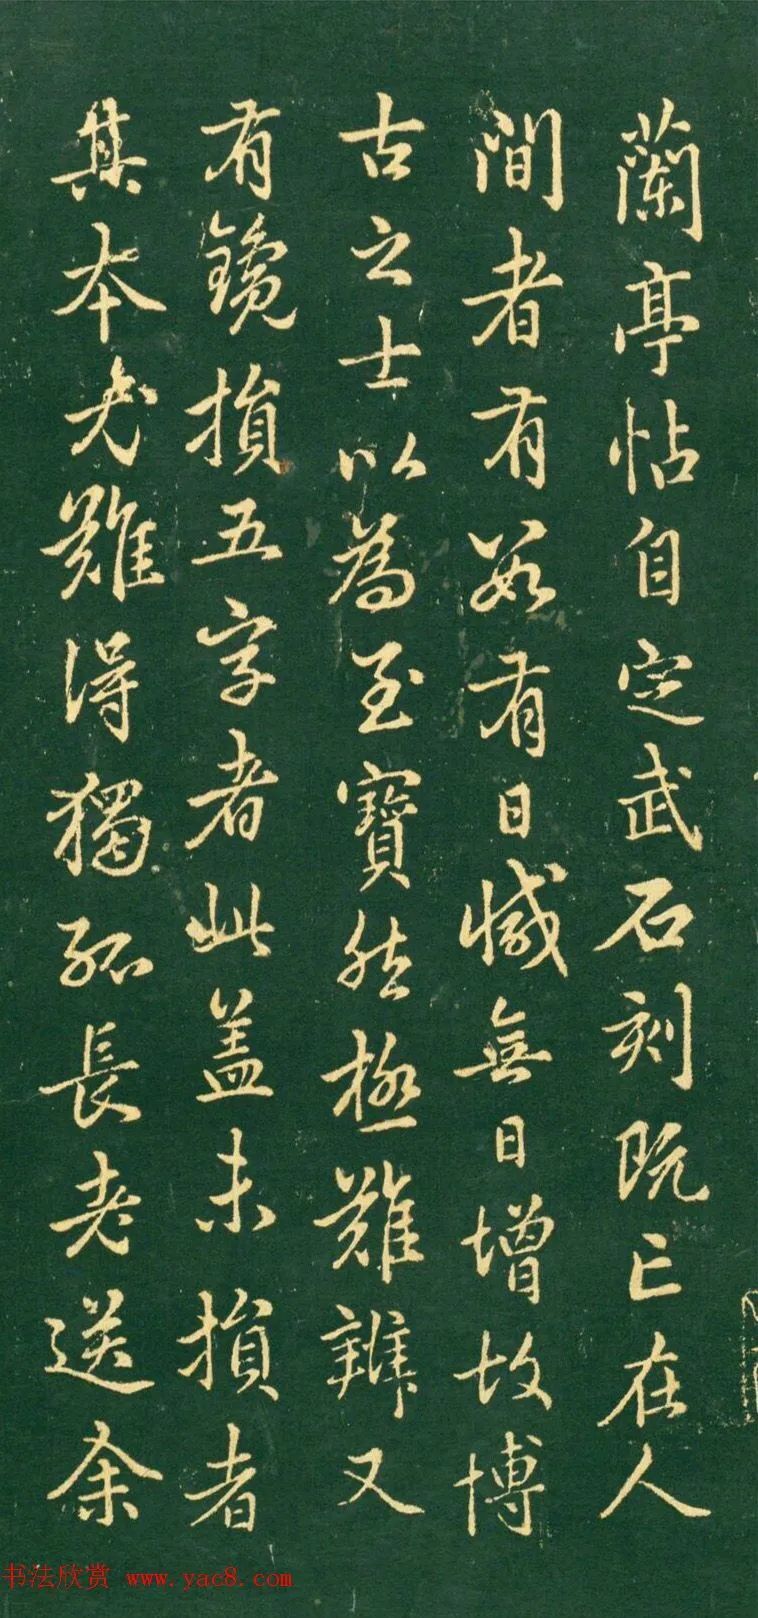 蘭亭帖自定武石刻既亡在人
間者有數有日減無日增故博
古之士以為至寶然極難辨又
有鑱損五字者此盖未損者
其本尤難得獨孤長老送余
书法欣赏 www.yac8.com